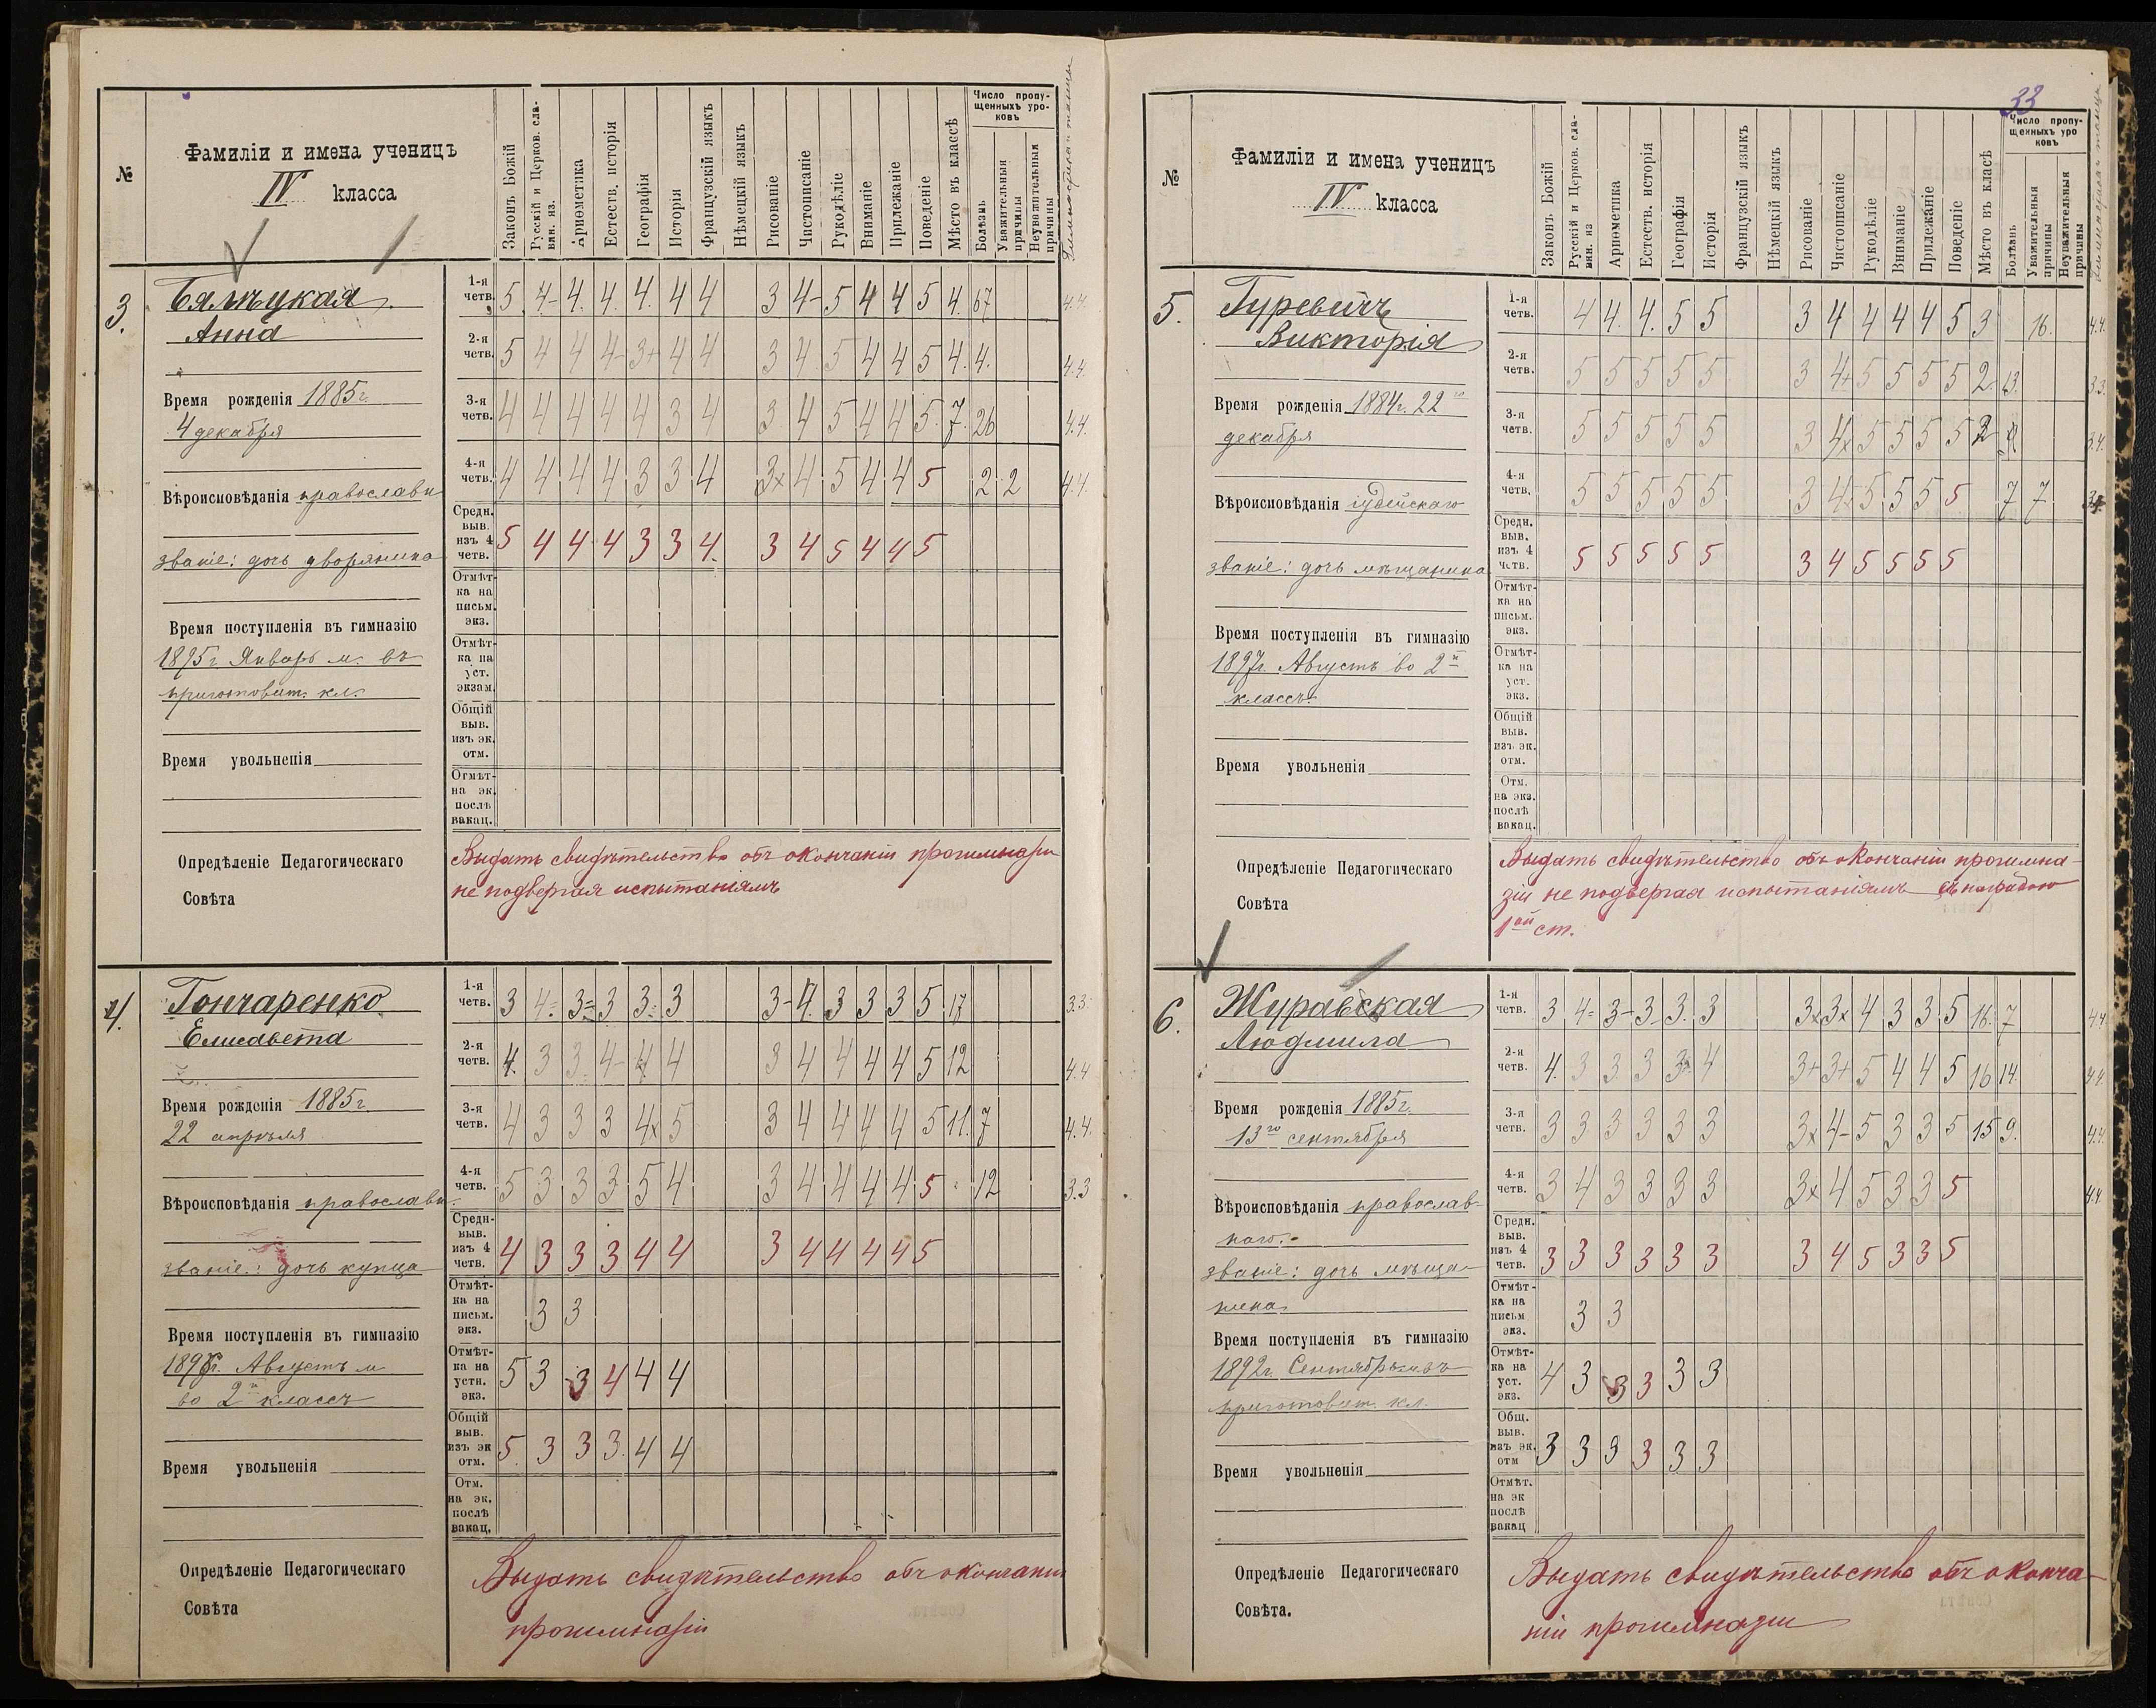 №
Фамиліи и имена ученицъ
IV класса
Законъ Божій
Русскій и Церков. сла-
вян. яз.
Ариѳметика
Естеств. исторія
Географія
Исторія
Французскій языкъ
Нѣмецкій языкъ
Рисованіе
Чистописаніе
Рукодѣліе
Вниманіе
Прилежаніе
Поведеніе
Мѣсто въ классѣ
Число пропу-
щенныхъ уро-
ковъ
Болѣзнь
Уважительныя
причины
Неуважительныя
причины
3.
Анна
Время рожденія 1885г.
4 декабря
Вѣроисповѣданія православн
званіе: дочь дворянина
Время поступленія въ гимназію
1895г Январь м. въ
приготовит. кл.
Время увольненія
Опредѣленіе Педагогическаго
Совѣта
1-я четв. 5 4- 4. 4 4. 4 4 3 4- 5 4 4 5 4. 67 4.4.
2-я четв. 5 4 4 4- 3+ 4 4 3 4 5 4 4 5 4. 4. 4.4.
3-я четв. 4 4 4 4 4 3 4 3 4 5 4 4 5 7. 26 4.4.
4-я четв. 4 4 4 4 3 3 4 3x 4 5 4 4 5 2 2 4.4
Средн. выв. изъ 4 четв. 5 4 4 4 3 3 4. 3 4 5 4 4 5
Отмѣт-
ка на
письм.
экз.
Отмѣт-
ка на
уст.
экзам.
Общій
выв.
изъ эк.
отм.
Отмѣт-
на эк.
послѣ
вакац.
Выдать свидѣтельство объ окончаніи прогимназіи
не подвергая испытаніямъ
4.
Гончаренко
Елисавета
Время рожденія 1885г.
22 апрѣля
Вѣроисповѣданія православн.
званіе: дочь купца
Время поступленія въ гимназію
Августъ м
во 2й классъ
Время увольненія
Опредѣленіе Педагогическаго
Совѣта
1-я четв. 3 4= 3= 3 3= 3 3- 4. 3 3 3 5 17 3.3.
2-я четв. 4. 3 3. 4- 4 4 3 4 4 4 4 5 12 4.4
3-я четв. 4 3 3 3 4x 5 3 4 4 4 4 5 11. 7 4.4.
4-я четв. 5 3 3 3 5 4 3 4 4 4 4 5 12 3.3
Средн- выв. изъ 4 четв. 4 3 3 3 4 4 3 4 4 4 4 5
Отмѣт- ка на письм. экз. 3 3
Отмѣт- ка на устн. экз. 5 3 3 4 4 4
Общій выв. изъ эк отм. 5. 3 3 3. 4 4
Отм.
на эк.
послѣ
вакац.
Выдать свидѣтельство объ окончаніи
прогимназіи
33
№
Фамиліи и имена ученицъ
IV класса
Законъ Божій
Русскій и Церков. сла-
вян. яз
Ариѳметика
Естеств. исторія
Географія
Исторія
Французскій языкъ
Нѣмецкій языкъ
Рисованіе
Чистописаніе
Рукодѣліе
Вниманіе
Прилежаніе
Поведеніе
Мѣсто въ класѣ
Число пропу-
щенныхъ уро
ковъ
Болѣзнь
Уважительныя
причины
Неуважительныя
причины
5.
Гуревичъ
Викторія
Время рожденія 1884г. 22го
декабря
Вѣроисповѣданія іудейскаго
званіе: дочь мѣщанина
Время поступленія въ гимназію
1897г. Августъ во 2й
классъ.
Время увольненія
Опредѣленіе Педагогическаго
Совѣта
1-я четв. 4 4. 4. 5 5 3 4 4 4 4 5 3 16. 4.4.
2-я четв. 5 5 5 5 5 3 4+ 5 5 5 5 2. 13. 3.3.
3-я четв. 5 5 5 5 5 3 4x 5 5 5 5 2 3.4.
4-я четв. 5 5 5 5 5 3 4x 5 5 5 5 7 7
Средн. выв. изъ 4 четв. 5 5 5 5 5 3 4 5 5 5 5
Отмѣт-
ка на
письм.
экз.
Отмѣт-
ка на
уст.
экз.
Общій
выв.
изъ эк.
отм.
Отм.
на экз.
послѣ
вакац.
Выдать свидѣтельство объ окончаніи прогимна-
зіи не подвергая испытаніямъ съ наградою
1ой ст.
6.
Журавская
Людмила
Время рожденія 1885г.
13го сентября
Вѣроисповѣданія православ-
наго.
званіе: дочь мѣща-
нина
Время поступленія въ гимназію
1892г. Сентябрь м. въ
приготовит. кл.
Время увольненія
Опредѣленіе Педагогическаго
Совѣта.
1-я четв. 3 4= 3- 3 3. 3 3x 3x 4 3 3 5 16. 7 4.4
2-я четв. 4. 3 3 3 3x 4 3+ 3+ 5 4 4 5 16 14. 4.4.
3-я четв. 3 3 3 3 3 3 3x 4- 5 3 3 5 15 9. 4.4.
4-я четв. 3 4 3 3 3 3 3x 4 5 3 3 5 4.4
Средн. выв. изъ 4 четв. 3 3 3 3 3 3 3 4 5 3 3 5
Отмѣт- ка на письм экз. 3 3
Отмѣт- ка на уст. экз. 4 3 3 3 3 3
Общ. выв. изъ эк. отм 3 3 3 3 3 3
Отмѣт.
на эк
послѣ
вакац
Выдать свидѣтельство объ оконча-
ніи прогимназіи